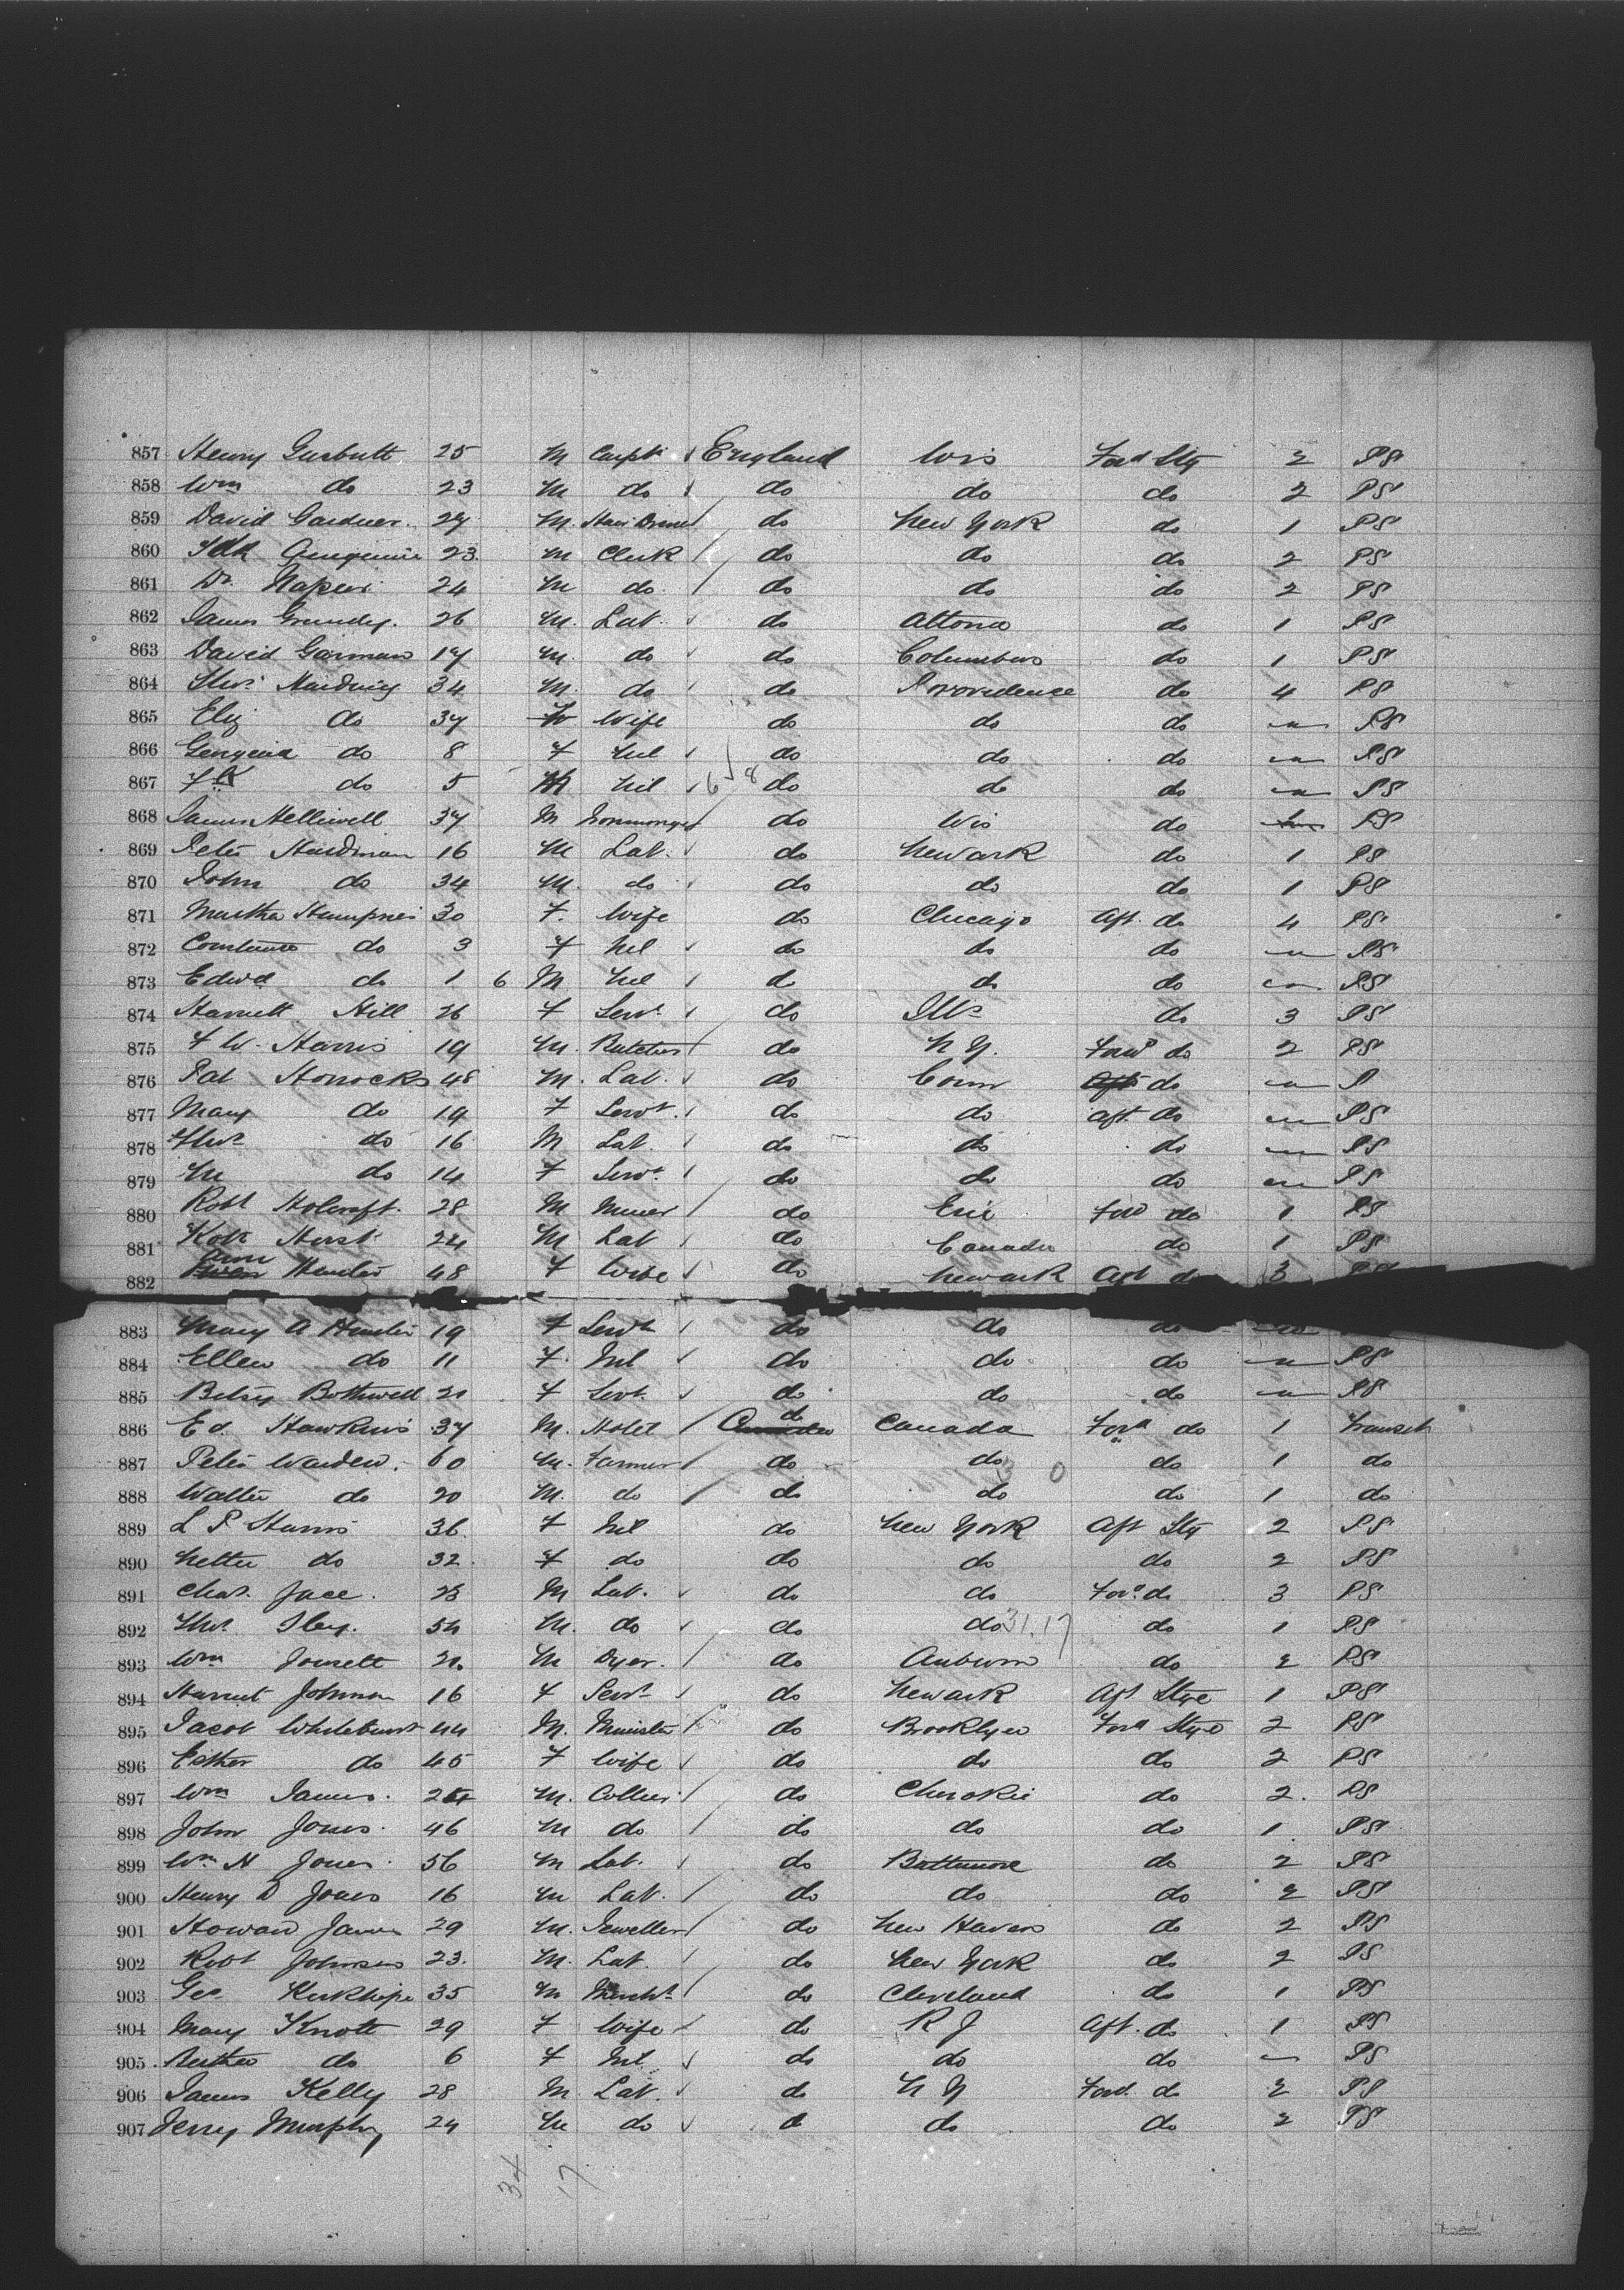 857 Henry Gurbutt 25 M Carpt England Wis Ford Stg 2 PS
858 Wm do 23 M do do do do 2 PS
859 David Gardner 27 M. do New York do 1 PS
860 23 M Clerk do do do 2 PS
861 Dr. Napier 24 M do do do do 2 PS
862 James Grundy. 26 M. Lab. do Altona do 1 PS
863 David Garman 17 M. do do Columbus do 1 PS
864 Thos Harding 34 M. do do Providence do 4 PS
865 Eliz do 37 Wife do do do " PS
866 do 8 F Nil do do do " PS
867 Fk do 5 M Nil 6 8 do do do " PS
868 James Helliwell 37 M Ironmonger do Wis do PS
869 Peter Hardman 16 M Lab. do Newark do 1 PS
870 John do 34 M. do do do do 1 PS
871 Martha 30 F. Wife do Chicago Aft. do 4 PS
872 Constance do 3 F Nil do do do " PS
873 Edwd do 1 6 M Nil do do do " PS
874 Harriett Hill 26 F Servt. do Ills do 3 PS
875 F W. Harris 19 M. Butcher do N Y. Ford do 2 PS
876 Pat Horrocks 48 M. Lab. do Conn Aft do " P
877 Mary do 19 F Servt. do do Aft. do " PS
878 Thos do 16 M Lab. do do do " PS
879 M do 14 F Servt. do do do " PS
880 Robt Holcroft. 28 M Miner do Erie Ford do 1 PS
881 Robt Hurst 24 M Lab do Canada do 1 PS
882 Ann Hunter 48 F Wife do Newark Aft do 3
883 Mary A Hunter 19 F Servt do do do
884 Ellen do 11 F. Nil do do do " PS
885 Betsy Bothwell 20 F Servt. do do do " PS
886 Ed. Hawkins 37 M. Hotel do Canada Ford do 1 Transit
887 Peter Warden. 60 M. Farmer do do do 1 do
888 Walter do 20 M. do do do do 1 do
889 L P Harris 36. F Nil do New York Aft Stg 2 PS
890 Nettie do 32. F do do do do 2 PS
891 Chas. Jace. 28 M Lab. do do Ford. do 3 PS
892 Thos. Iley. 54 M. do do do 31.17 do 1 PS
893 Wm Jowett 20. M Dyer. do Auburn do 2 PS
894 Harriet Johnson 16 F Servt do Newark Aft Stge 1 PS
895 Jacob Whitehurst 44 M. Minister do Brooklyn Ford Stge 2 PS
896 Esther do 45 F Wife do do do 2 PS
897 Wm James. M. Collier do Cherokie do 2. PS
898 John Jones. 46 M do do do do 1 PS
899 Wm H Jones. 56 M Lab. do Baltimore do 2 PS
900 Henry D Jones 16 M Lab. do do do 2 PS
901 Howard James 29 M. Jeweller do New Haven do 2 PS
902 Robt Johnson 23. M. Lab. do New York do 2 PS
903 Geo. 35 M Mercht do Cleveland do 1 PS
904 Mary Knott 29 F Wife do R J Aft. do 1 PS
905 Bertha do 6 F Nil do do do " PS
906 James Kelly 28 M. Lab. do N Y Ford. do 2 PS
907 Jerry Murphy 24 M do do do do 2 PS
34 17